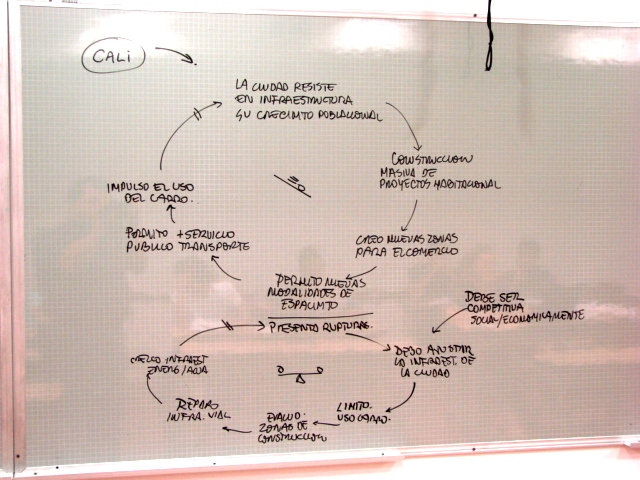 CALI
LA CIUDAD RESISTE
EN INFRAESTRUCTURA
SU CRECIMTO POBLACIONAL
CONSTRUCCION
MASIVA DE
PROYECTOS HABITACIONAL
CREO NUEVAS ZONAS
PARA EL COMERCIO
PERMITO NUEVAS
MODALIDADES DE
ESPACIMTO
PERMITO + SERVICIO
PUBLICO TRANSPORTE
IMPULSO EL USO
DEL CARRO.
PRESENTO RUPTURAS.
DEBE SER
COMPETITIVA
SOCIAL/ECONOMICAMENTE
DEJO AJUSTAR
LA INFRAEST. DE
LA CIUDAD
LIMITO.
USO CARRO.
EVALUO.
ZONAS DE
CONSTRUCCION
REPARO
INFRA. VIAL
INFRAEST
ENERG/AGUA